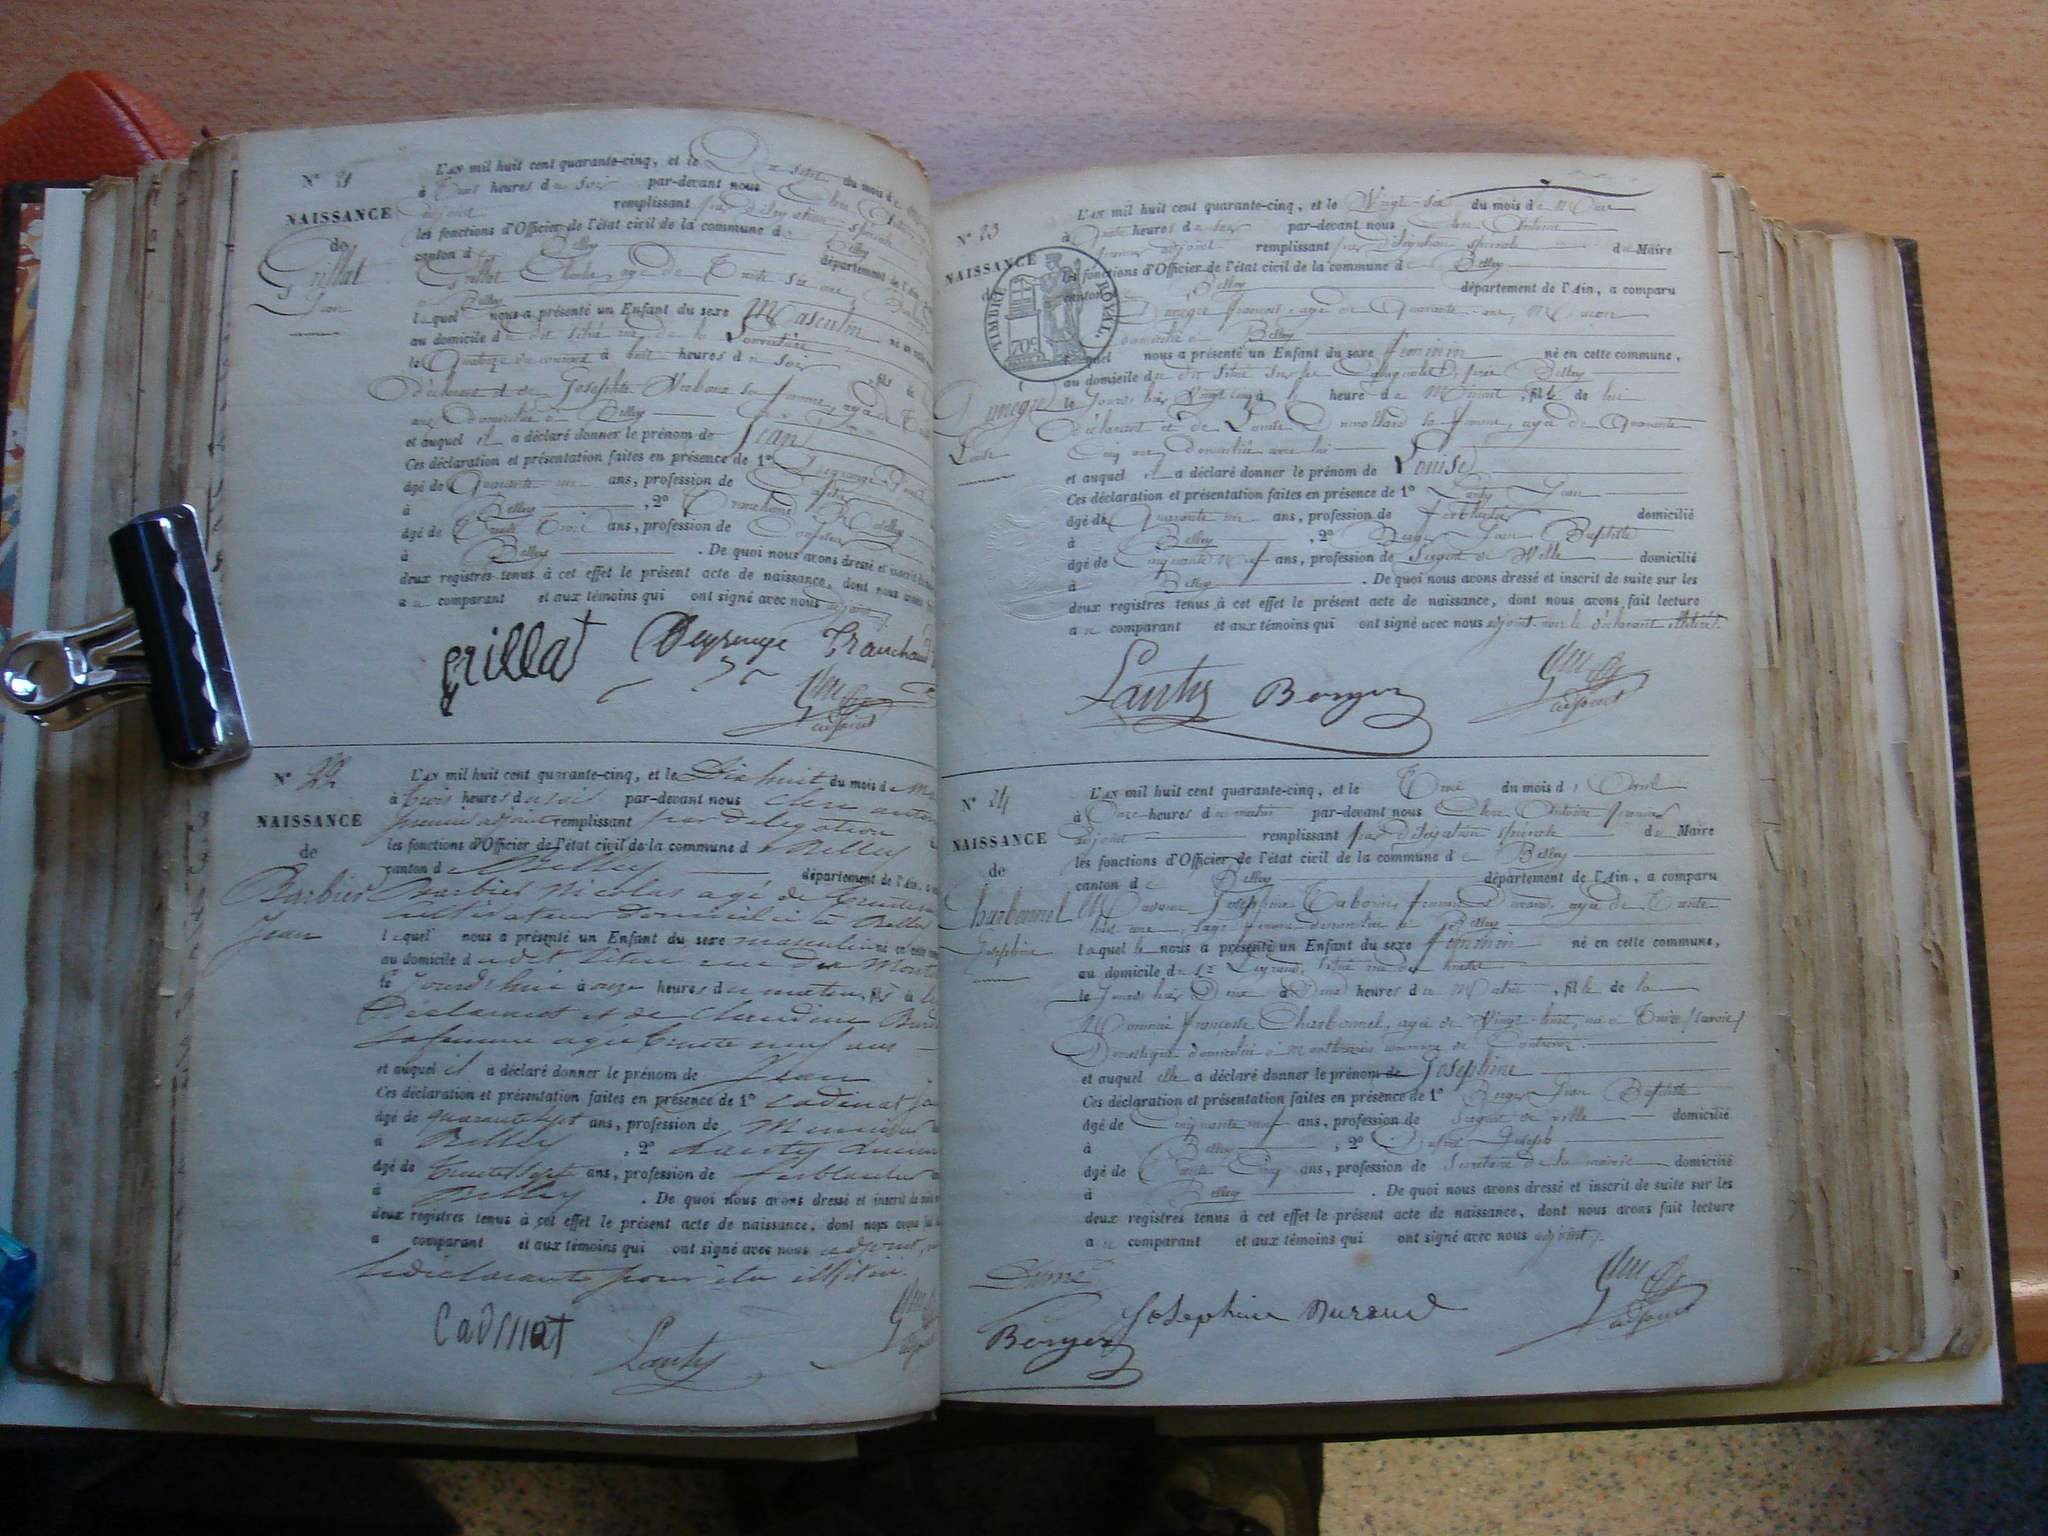 N° 21
NAISSANCE
de
Grillat
Jean
L'AN mil huit cent quarante-cinq, et le Dix sept du mois de
à Trois heures du soir par-devant nous Clerc Antoine
adjoint remplissant par délégation spéciale
les fonctions d'Officier de l'état civil de la commune de Belley
canton de Belley département de l'Ain,
Grillat Charles, agé de Trente six ans,
à Belley
lequel nous a présenté un Enfant du sexe Masculin né en cette
au domicile du dit situé rue de la
le Quatorze du courant à huit heures du soir fils de
déclarant et de Josephte sa femme, agée de
ans, domiciliée à Belley
et auquel il a déclaré donner le prénom de Jean
Ces déclaration et présentation faites en présence de 1°
âgé de Quarante un ans, profession de
à Belley , 2°
âgé de Trente Trois ans, profession de
à Belley . De quoi nous avons dressé et inscrit de
deux registres tenus à cet effet le présent acte de naissance, dont nous avons
au comparant et aux témoins qui ont signé avec nous adjoint.
grillat
adjoint
N° 22
NAISSANCE
de
Barbier
Jean
L'AN mil huit cent quarante-cinq, et le Dix huit du mois de
à trois heures du soir par-devant nous Clerc antoine
premier adjoint remplissant par délégation
les fonctions d'Officier de l'état civil de la commune de Belley
canton de Belley département de l'Ain, a
Barbier Nicolas agé de trente
Cultivateur domicilié à Belley
lequel nous a présenté un Enfant du sexe masculin né en cette
au domicile du dit situé rue du
le Jourd'hui à onze heures du matin, fils de lui
Déclarant et de Claudine
sa femme agée trente neuf ans
et auquel il a déclaré donner le prénom de Jean
Ces déclaration et présentation faites en présence de 1° Cadinat
âgé de quarante sept ans, profession de Menuisier
à Belley , 2° Lanty
âgé de trente sept ans, profession de ferblantier
à Belley . De quoi nous avons dressé et inscrit de suite
deux registres tenus à cet effet le présent acte de naissance, dont nous avons fait
au comparant et aux témoins qui ont signé avec nous adjoint,
le déclarant pour être illitéré.
Cadinat
Lanty
N° 23
NAISSANCE
de
TIMBRE ROYAL.
709
Louise
L'AN mil huit cent quarante-cinq, et le Vingt-six du mois de Mars
à Quatre heures du soir par-devant nous Clerc Antoine
premier adjoint remplissant par délégation spéciale du Maire
les fonctions d'Officier de l'état civil de la commune de Belley
canton de Belley département de l'Ain, a comparu
françois agé de Quarante ans, Maçon
domicilié à Belley
lequel nous a présenté un Enfant du sexe féminin né en cette commune,
au domicile du dit situé
le Jours hier Vingt cinq à heure du Matin, fille de lui
déclarant et de Louise sa femme, agée de Quarante
Cinq ans, domiciliée avec lui
et auquel il a déclaré donner le prénom de Louise
Ces déclaration et présentation faites en présence de 1° Lanty Jean
âgé de Quarante un ans, profession de ferblantier domicilié
à Belley , 2° Berger Jean Baptiste
âgé de Cinquante neuf ans, profession de Sergent de Ville domicilié
à Belley . De quoi nous avons dressé et inscrit de suite sur les
deux registres tenus à cet effet le présent acte de naissance, dont nous avons fait lecture
au comparant et aux témoins qui ont signé avec nous adjoint non le déclarant illitéré.
Lanty Berger
adjoint
N° 24
NAISSANCE
de
Charbonnel
Josephine
L'AN mil huit cent quarante-cinq, et le Trois du mois d'Avril
à Onze heures du matin par-devant nous Clerc Antoine premier
adjoint remplissant par délégation spéciale du Maire
les fonctions d'Officier de l'état civil de la commune de Belley
canton de Belley département de l'Ain, a comparu
Madame Josephine femme Durand, agée de Trente
huit ans, sage femme domiciliée à Belley
laquelle nous a présenté un Enfant du sexe féminin né en cette commune,
au domicile du Sr situé rue
le Jours hier Deux à Deux heures du Matin, fille de la
Nommée françoise Charbonnel, agée de Vingt-huit, née à (Savoie)
Domestique domiciliée à commune de
et auquel elle a déclaré donner le prénom de Josephine
Ces déclaration et présentation faites en présence de 1° Berger Jean Baptiste
âgé de Cinquante neuf ans, profession de Sergent de ville domicilié
à Belley , 2° Joseph
âgé de Trente Cinq ans, profession de Secrétaire de la mairie domicilié
à Belley . De quoi nous avons dressé et inscrit de suite sur les
deux registres tenus à cet effet le présent acte de naissance, dont nous avons fait lecture
au comparant et aux témoins qui ont signé avec nous adjoint.
Berger Josephine Durand
adjoint